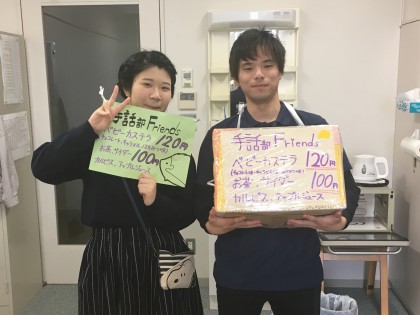 手話部 Friends
ベビーカステラ
120円
100円
お茶、サイダー
カルピス、アップルジュース
手話部 Friends
ベビーカステラ 120円
お茶、サイダー 100円
カルピス、アップルジュース